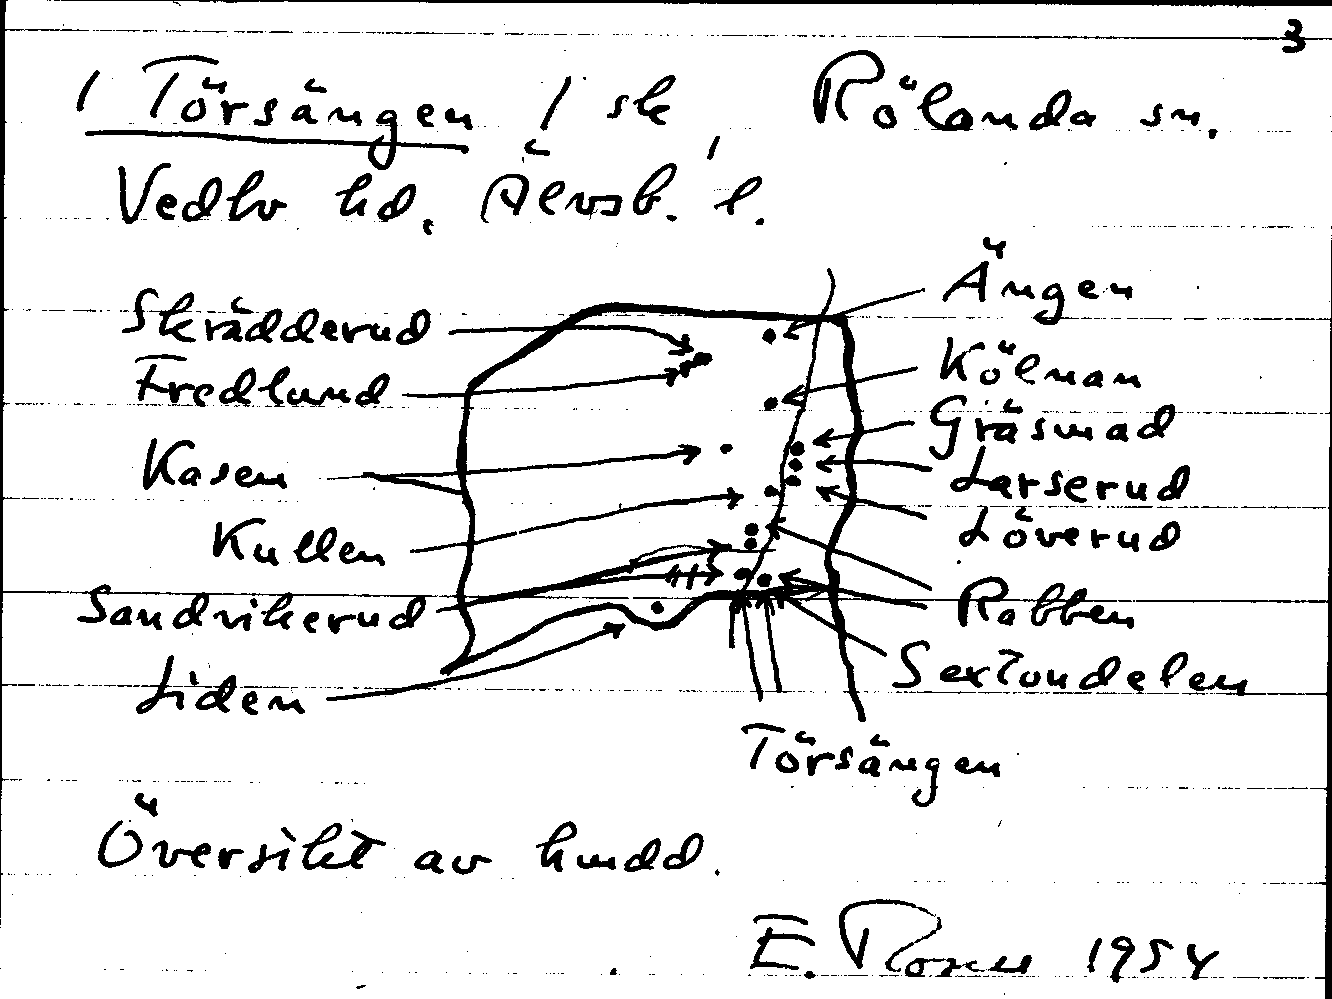 3
/ Törsängen / sk, Rölanda sn.
Vedbo hd. Älvsb. l.
Skrädderud
Fredlund
Kasen
Kullen
Sandvikerud
Liden
Ängen
Kölnan
Gräsmad
Larserud
Löverud
Rabben
Sextondelen
Törsängen
Översikt av hmdd.
E. Rosell 1954